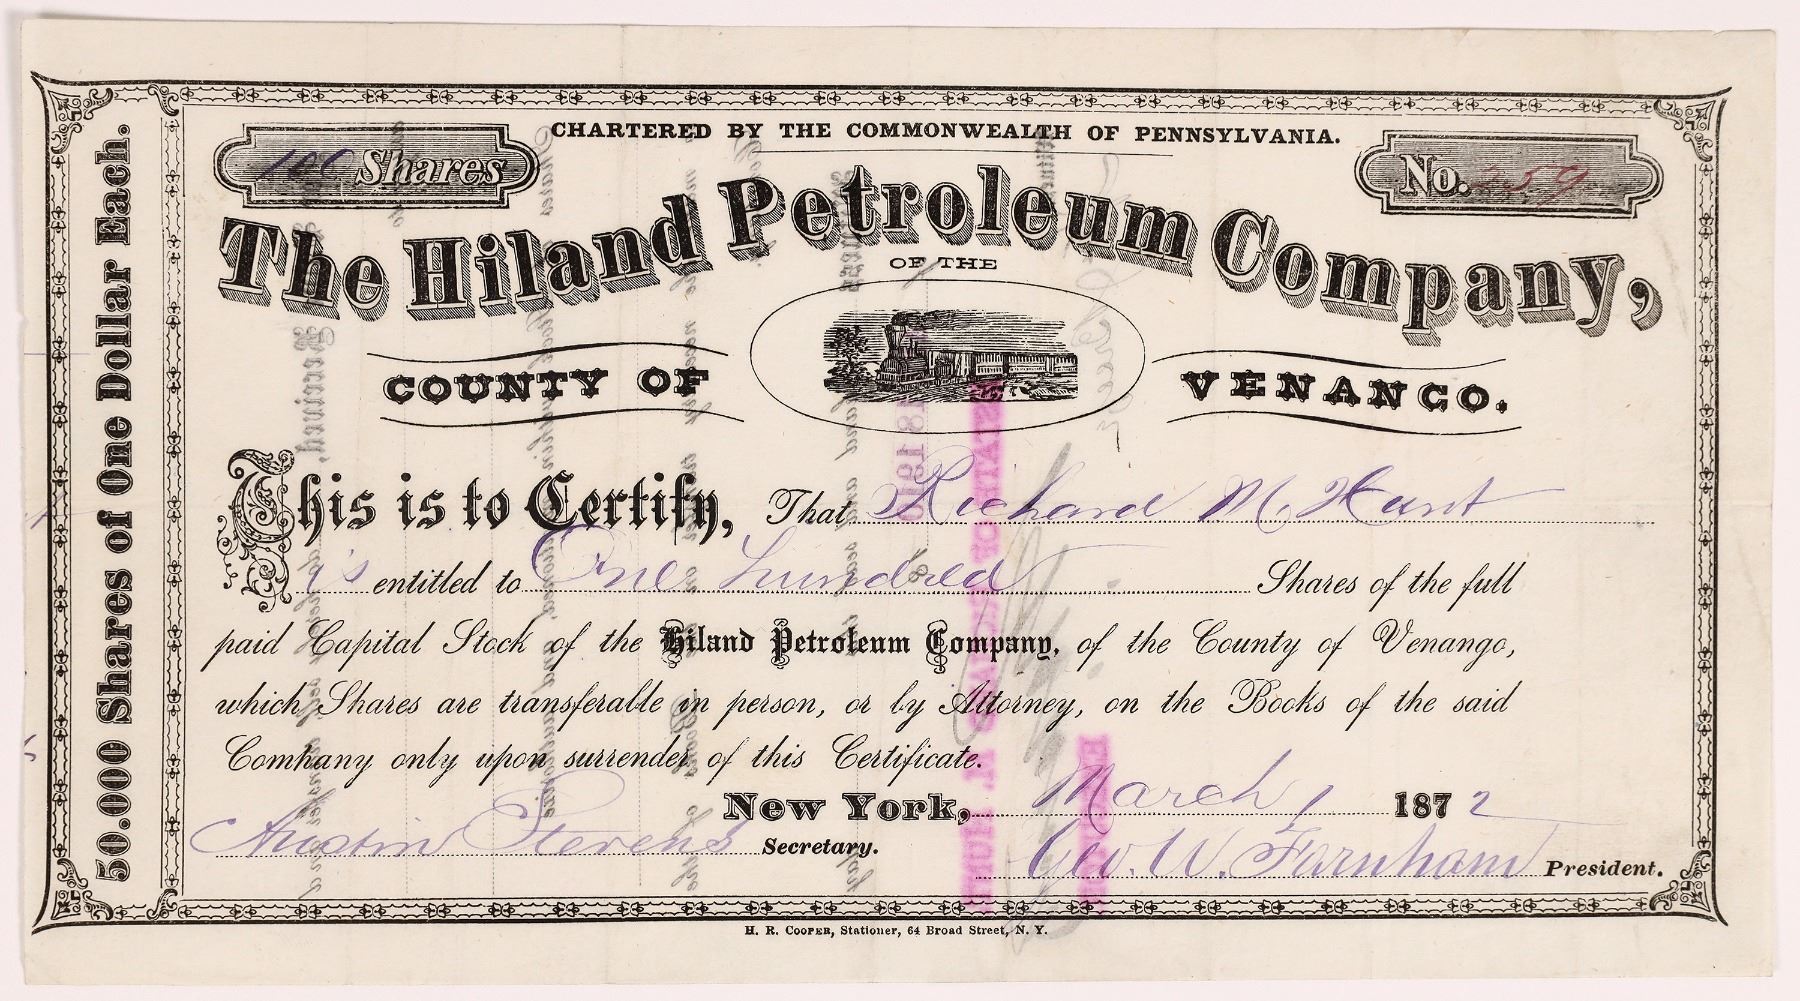 CHARTERED BY THE COMMONWEALTH OF PENNSYLVANIA.
100 Shares
No. 259
The Hiland Petroleum Company,
OF THE
COUNTY OF VENANCO.
This is to Certify, That Richard M Hunt
is entitled to One hundred Shares of the full
paid Capital Stock of the Hiland Petroleum Company, of the County of Venango,
which Shares are transferable in person, or by Attorney, on the Books of the said
Company only upon surrender of this Certificate.
New York, March 1 1872
Austin Stevens Secretary.
Geo. W. Farnham President.
50.000 Shares of One Dollar Each.
H. R. COOPER, Stationer, 64 Broad Street, N. Y.